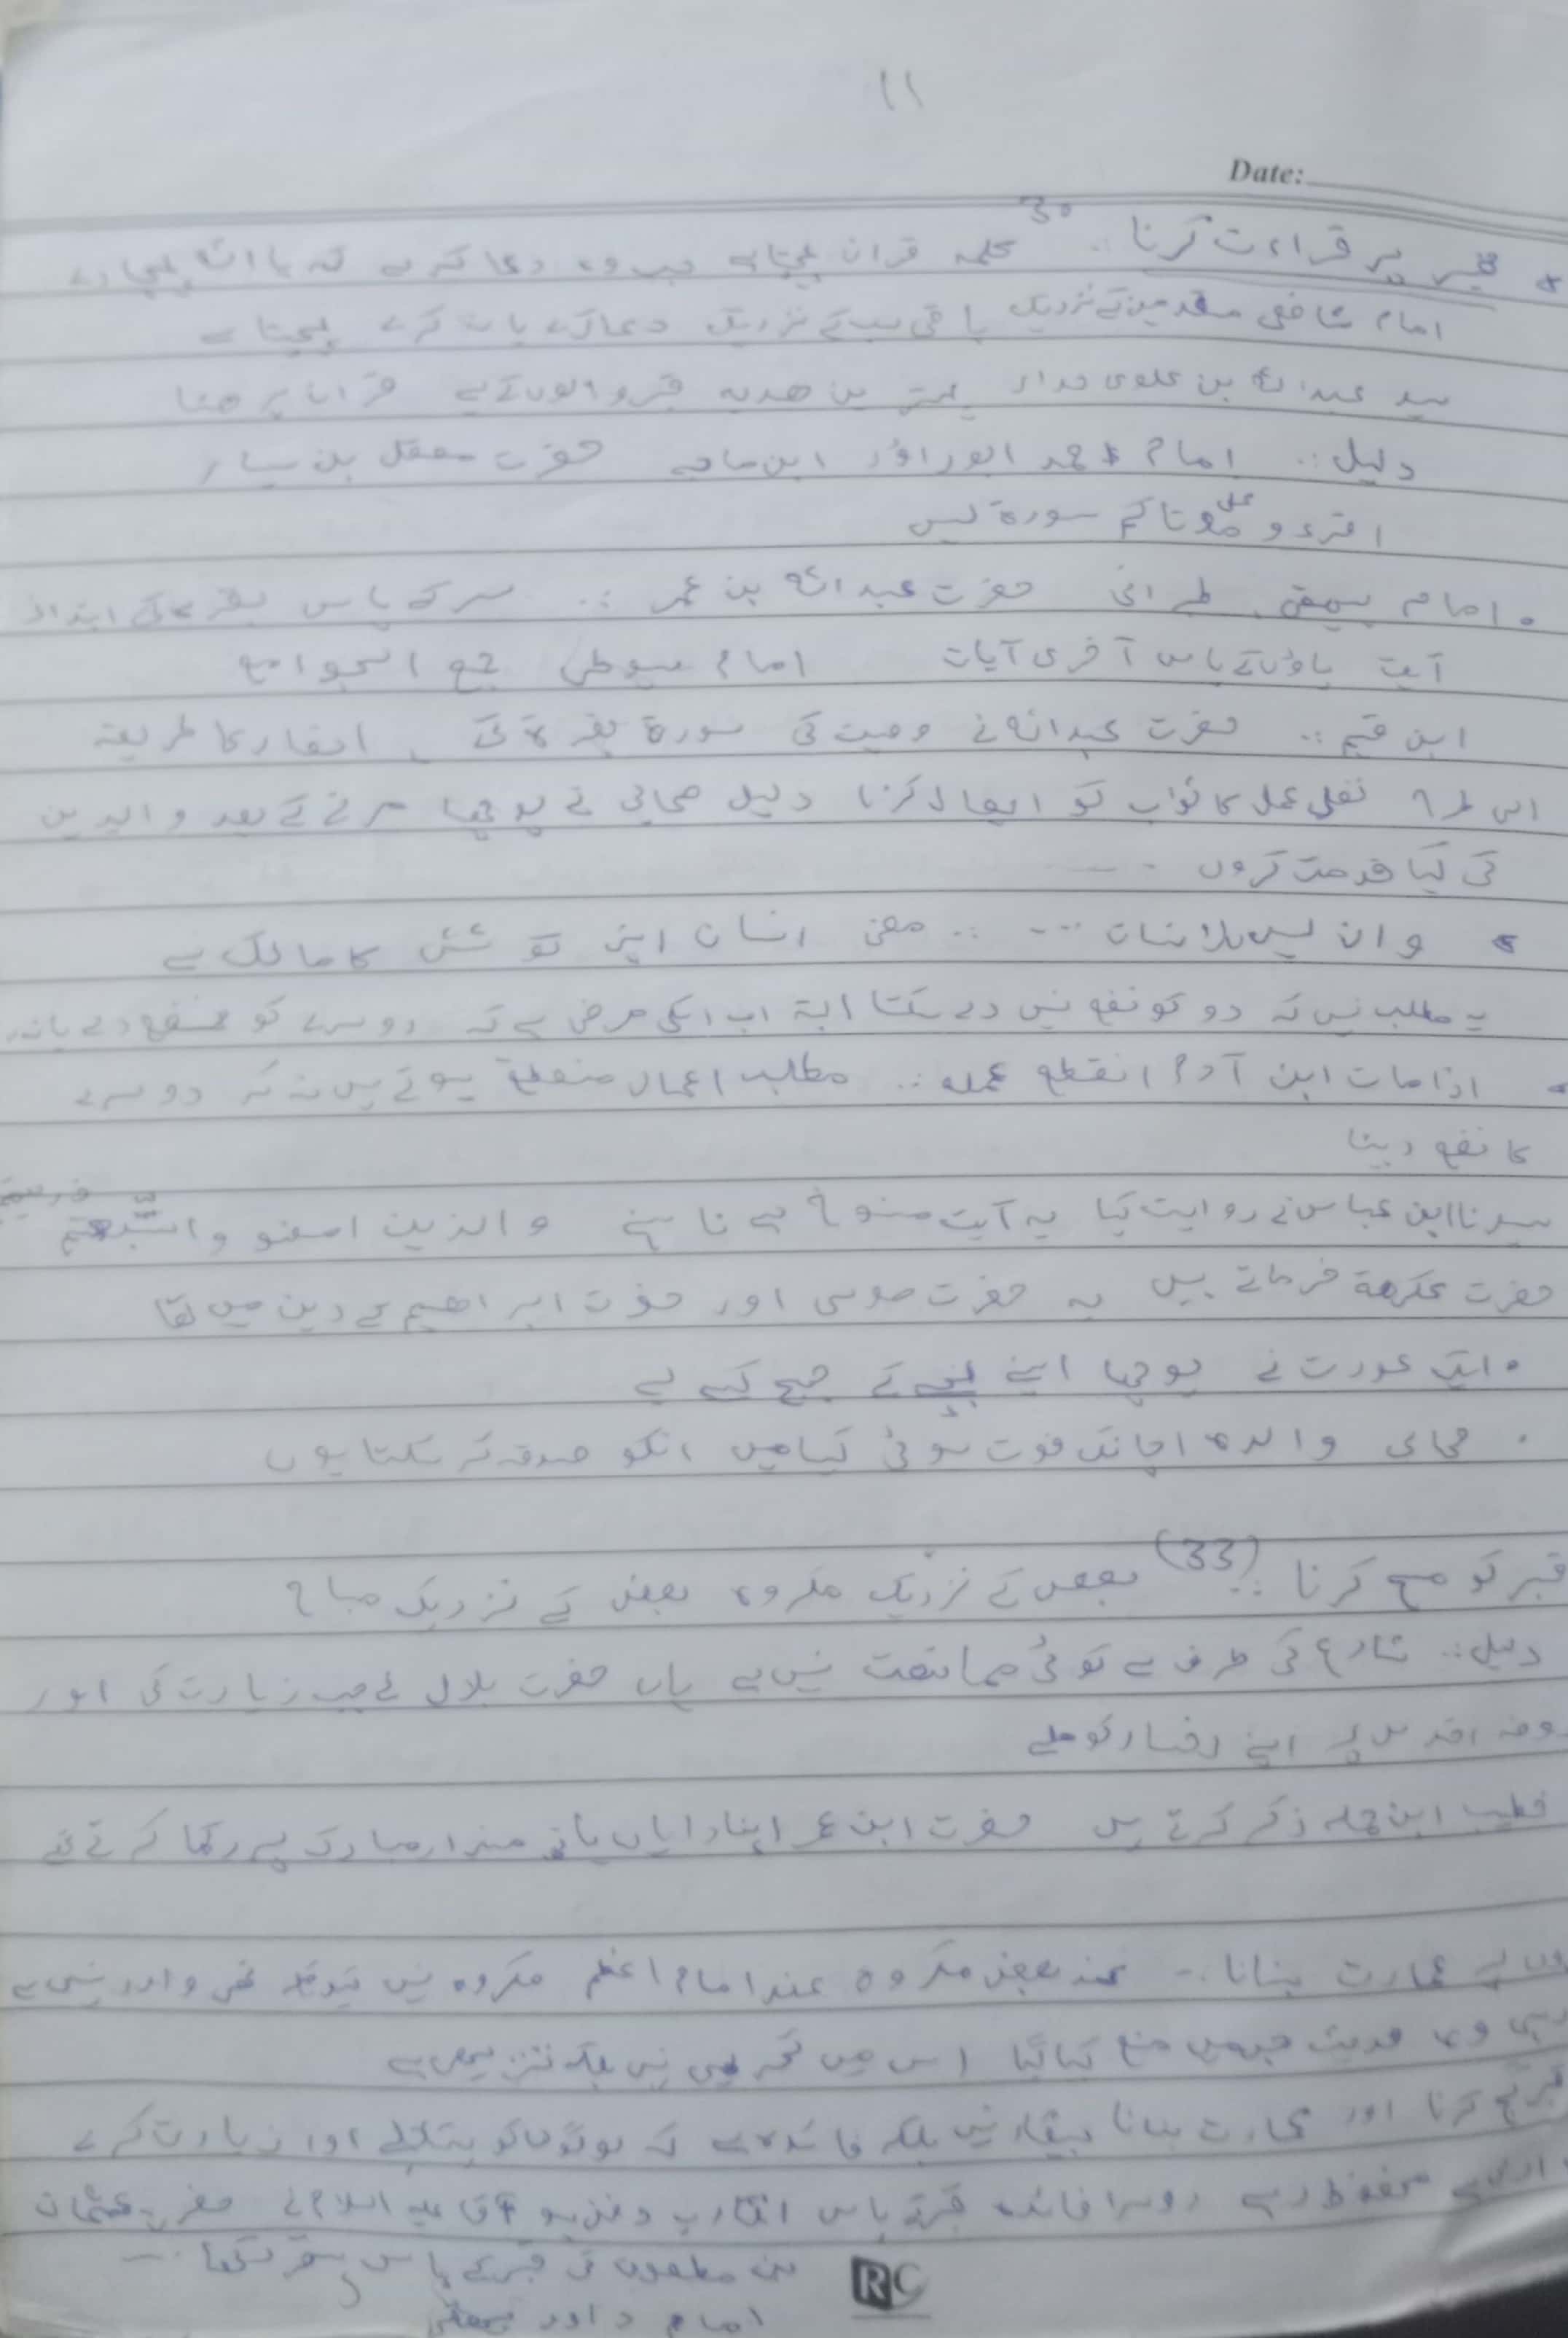 ١١
Date:
قبر پر قراءت کرنا :. 30 کلمہ قران پہنچتا ہے جب وہ دعا کرے کہ یا اللہ پہنچا دے
امام شافعی متقدمین کے نزدیک باقی سب کے نزدیک دعا کرے یا نہ کرے پہنچتا ہے
سید عبداللہ بن علوی حداد بہترین ھدیہ قبر والوں کے لیے قران پڑھنا
دلیل :. امام احمد ابوداؤد ابن ماجہ حضرت معقل بن یسار
اقرءو علی موتاکم سورۃ یس
امام بیھقی طبرانی حضرت عبداللہ بن عمر :. سر کے پاس بقرہ کی ابتدائ
آیت پاؤں کے پاس آخری آیات امام سیوطی جمع الجوامع
ابن قیم :. حضرت عبداللہ نے وصیت کی سورۃ بقرۃ کی انصار کا طریقہ
اس طرح نفلی عمل کا ثواب کو ایصال کرنا دلیل صحابی نے پوچھا مرنے کے بعد والدین
کی کیا خدمت کروں ---
وان لیس للانسان --- :. معنی انسان اپنی کوشش کا مالک ہے
یہ مطلب نہیں کہ دو کو نفع نہیں دے سکتا البتہ اب اسکی مرضی ہے کہ دوسرے کو منفع دے یا نہ
اذا مات ابن آدم انقطع عملہ :. مطلب اعمال منقطع ہوتے ہیں نہ کہ دوسرے
کا نفع دینا
سیدنا ابن عباس نے روایت کیا یہ آیت منسوخ ہے ناسخ والذین امنو واتبعتھم
حضرت عکرمۃ فرماتے ہیں یہ حضرت موسی اور حضرت ابراھیم کے دین میں تھا
ایک عورت نے پوچھا اپنے بچے کے حج کیلے
صحابی والدہ اچانک فوت ہوئی کیا میں انکو صدقہ کر سکتا ہوں
قبر کو مسح کرنا :. (33) بعض کے نزدیک مکروہ بعض کے نزدیک مباح
دلیل :. شارع کی طرف سے کوئی ممانعت نہیں ہے ہاں حضرت بلال نے جب زیارت کی اور
روضہ اقدس پہ اپنے رخسار کو ملے
خطیب ابن حملہ ذکر کرتے ہیں حضرت ابن عمر اپنا دایاں ہاتھ مزار مبارک پہ رکھا کرتے تھے
پے عمارت بنانا :. عند بعض مکروہ عند امام اعظم مکروہ نہیں کیونکہ نھی وارد نہیں ہے
رہی وہ حدیث جسمیں منع کیا گیا اس میں نھی تحریمی نہیں بلکہ تنزیھی ہے
کرنا اور عمارت بنانا بیکار نہیں بلکہ فائدہ ہے کہ لوگوں کو پتا چلے اور زیارت کرے
محفوظ رہے دوسرا فائدہ قبر کے پاس اقارب دفن ہو آقا علیہ السلام نے حضرت عثمان
بن مظعون کی قبر کے پاس پتھر رکھا ---
امام داود بیھقی
RC